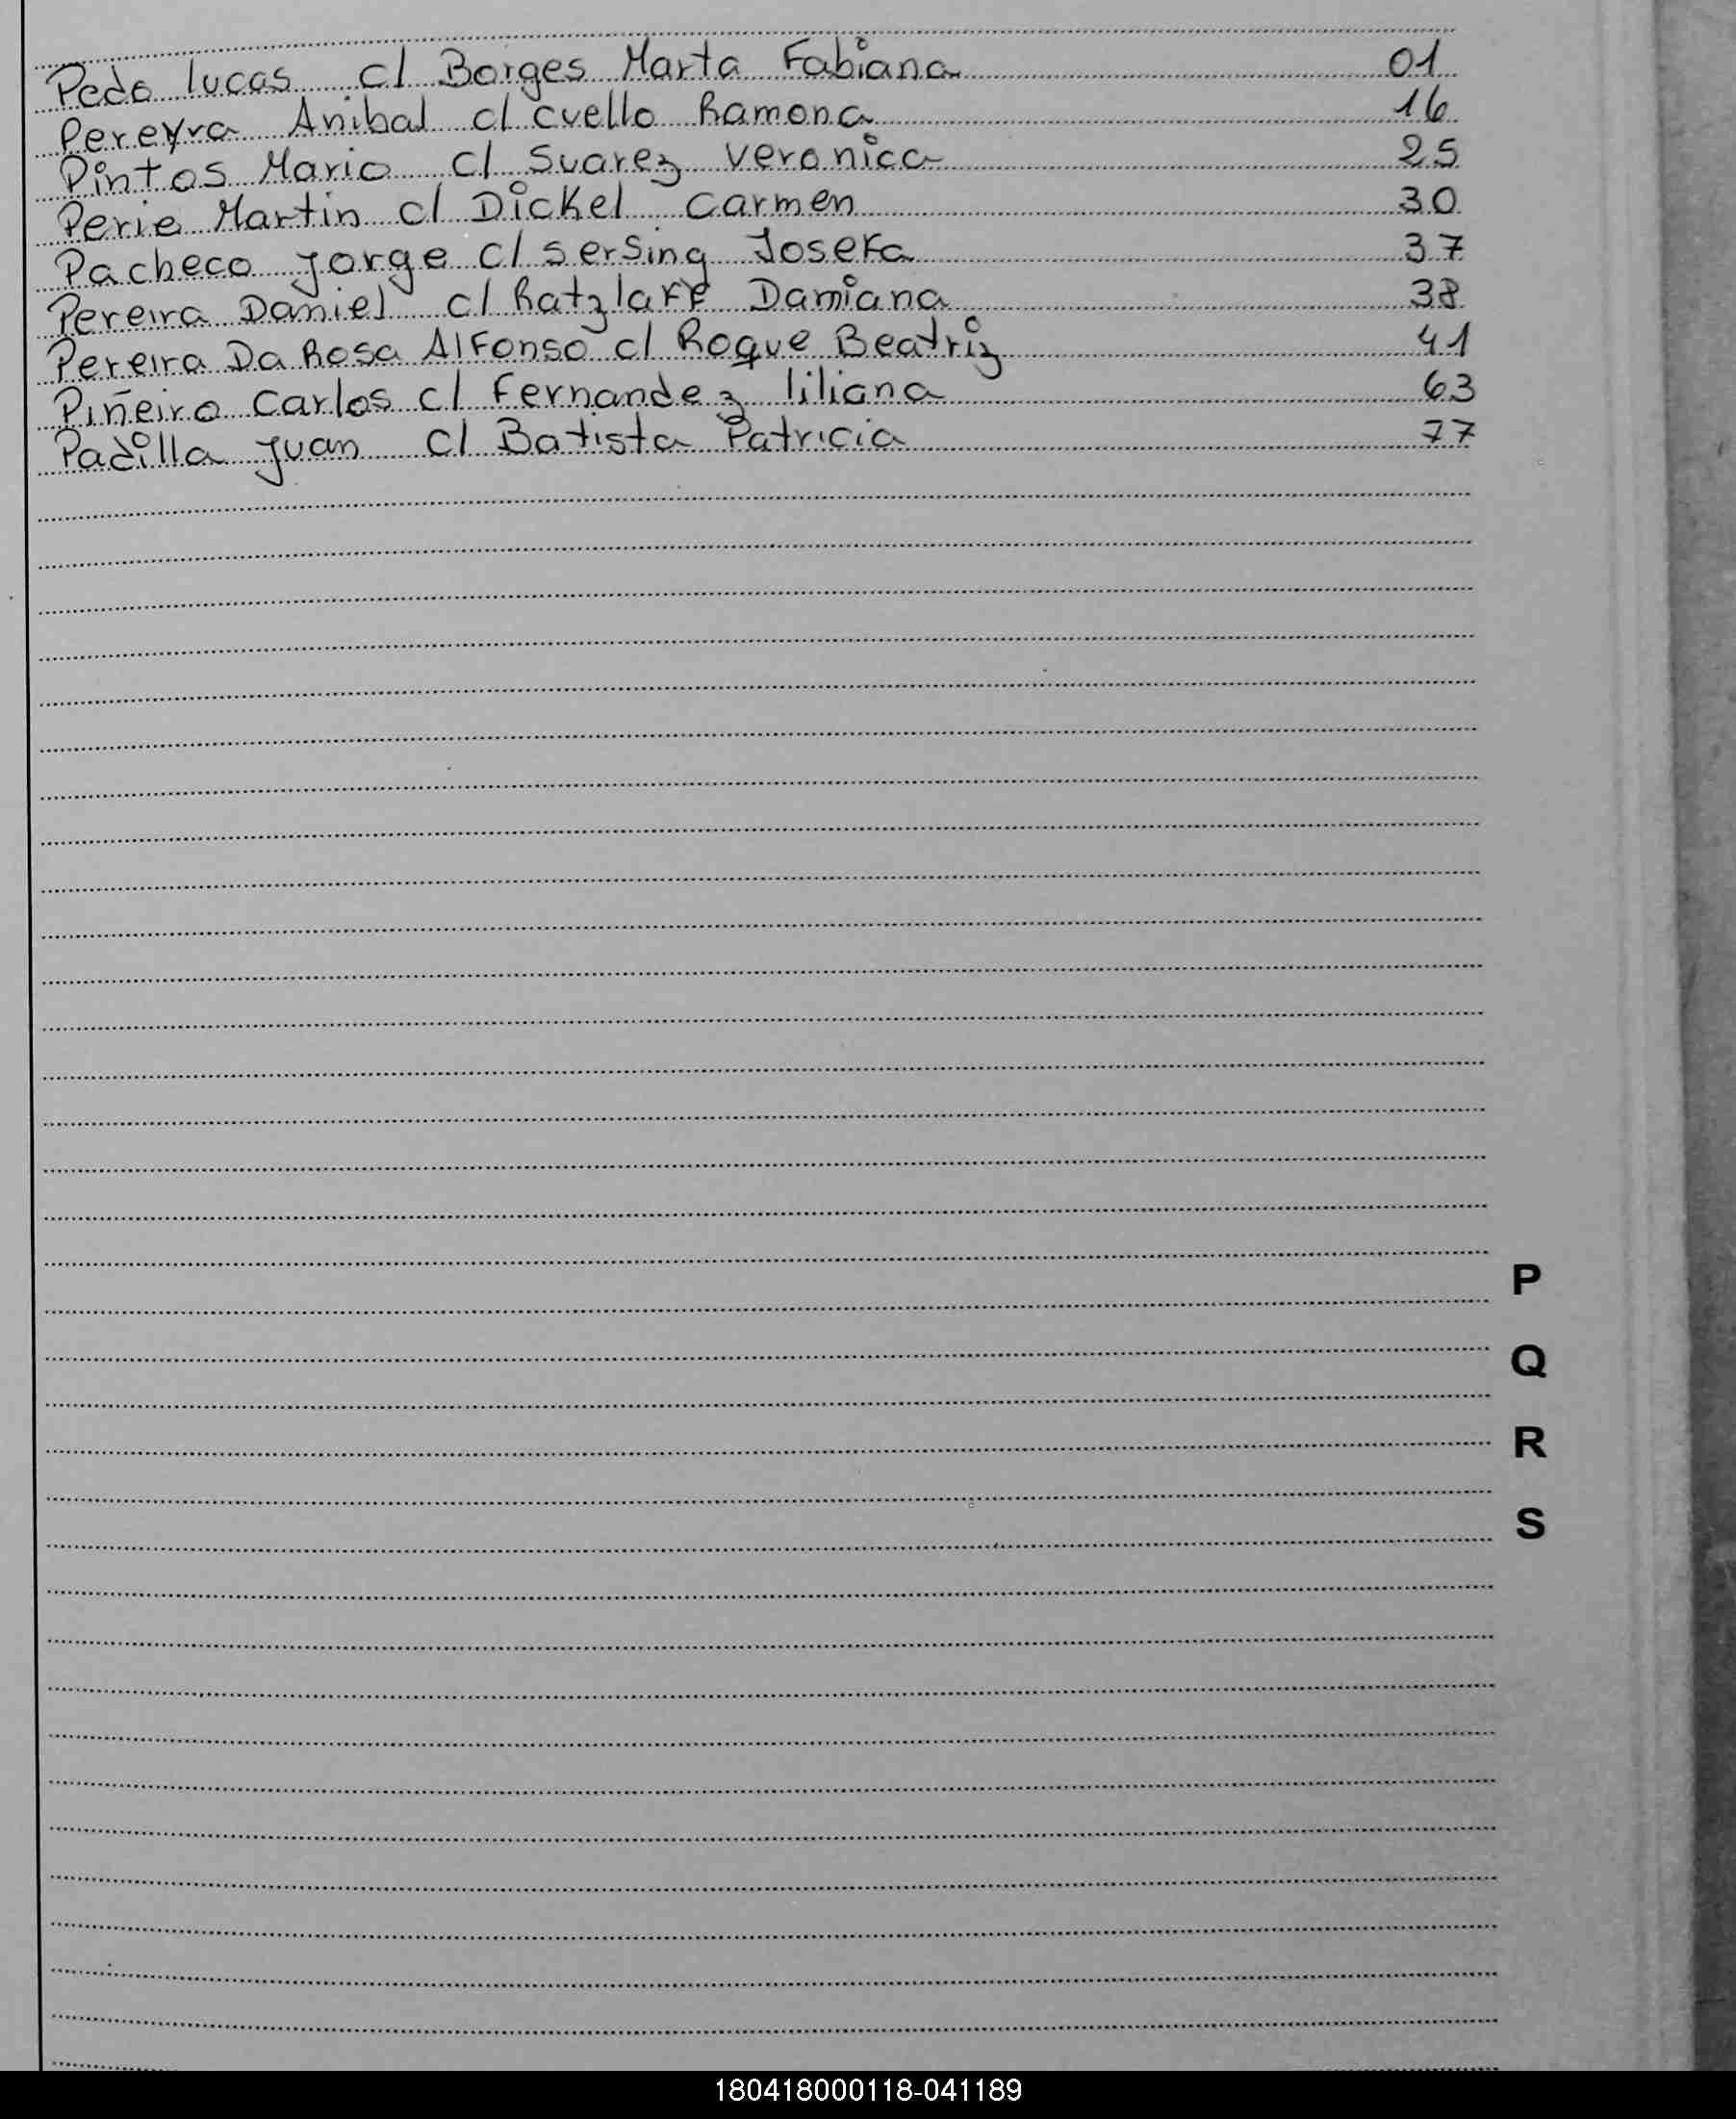 Pedo lucas c/ Borges Marta Fabiana 01
Pereyra Anibal c/ cuello Ramona 16
Pintos Mario c/ Suarez veronica 25
Perie Martin c/ Dickel carmen 30
Pacheco Jorge c/ sersing Josefa 37
Pereira Daniel c/ Ratzlaff Damiana 38
Pereira Da Rosa Alfonso c/ Roque Beatriz 41
Piñeiro carlos c/ Fernandez liliana 63
Padilla Juan c/ Batista Patricia 77
P
Q
R
S
180418000118-041189